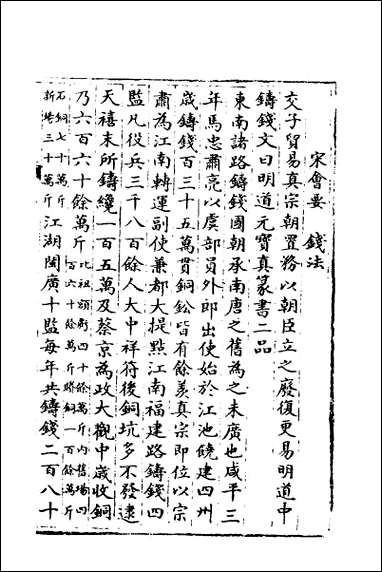 宋會要 錢法
交子貿易真宗朝置務以朝臣立之廢復更易明道中
鑄錢文曰明道元寶真篆書二品
東南諸路鑄錢國朝承南唐之舊為之未廣也咸平三
年馬忠肅亮以虞部員外郎出使始於江池饒建四州
歲鑄錢百三十五萬貫銅鈆皆有餘羡真宗即位以宗
肅為江南轉運副使兼都大提點江南福建路鑄錢四
監凡役兵三千八百餘人大中祥符後銅坑多不發逮
天禧末所鑄纔一百五萬及蔡京為政大觀中歲收銅
乃六百六十餘萬斤比祖額衝四十餘萬斤内舊場四百六十餘萬斤膽銅一百餘萬斤
石銅七十萬斤新塔三十萬斤江湖閩廣十監每年共鑄錢二百八十